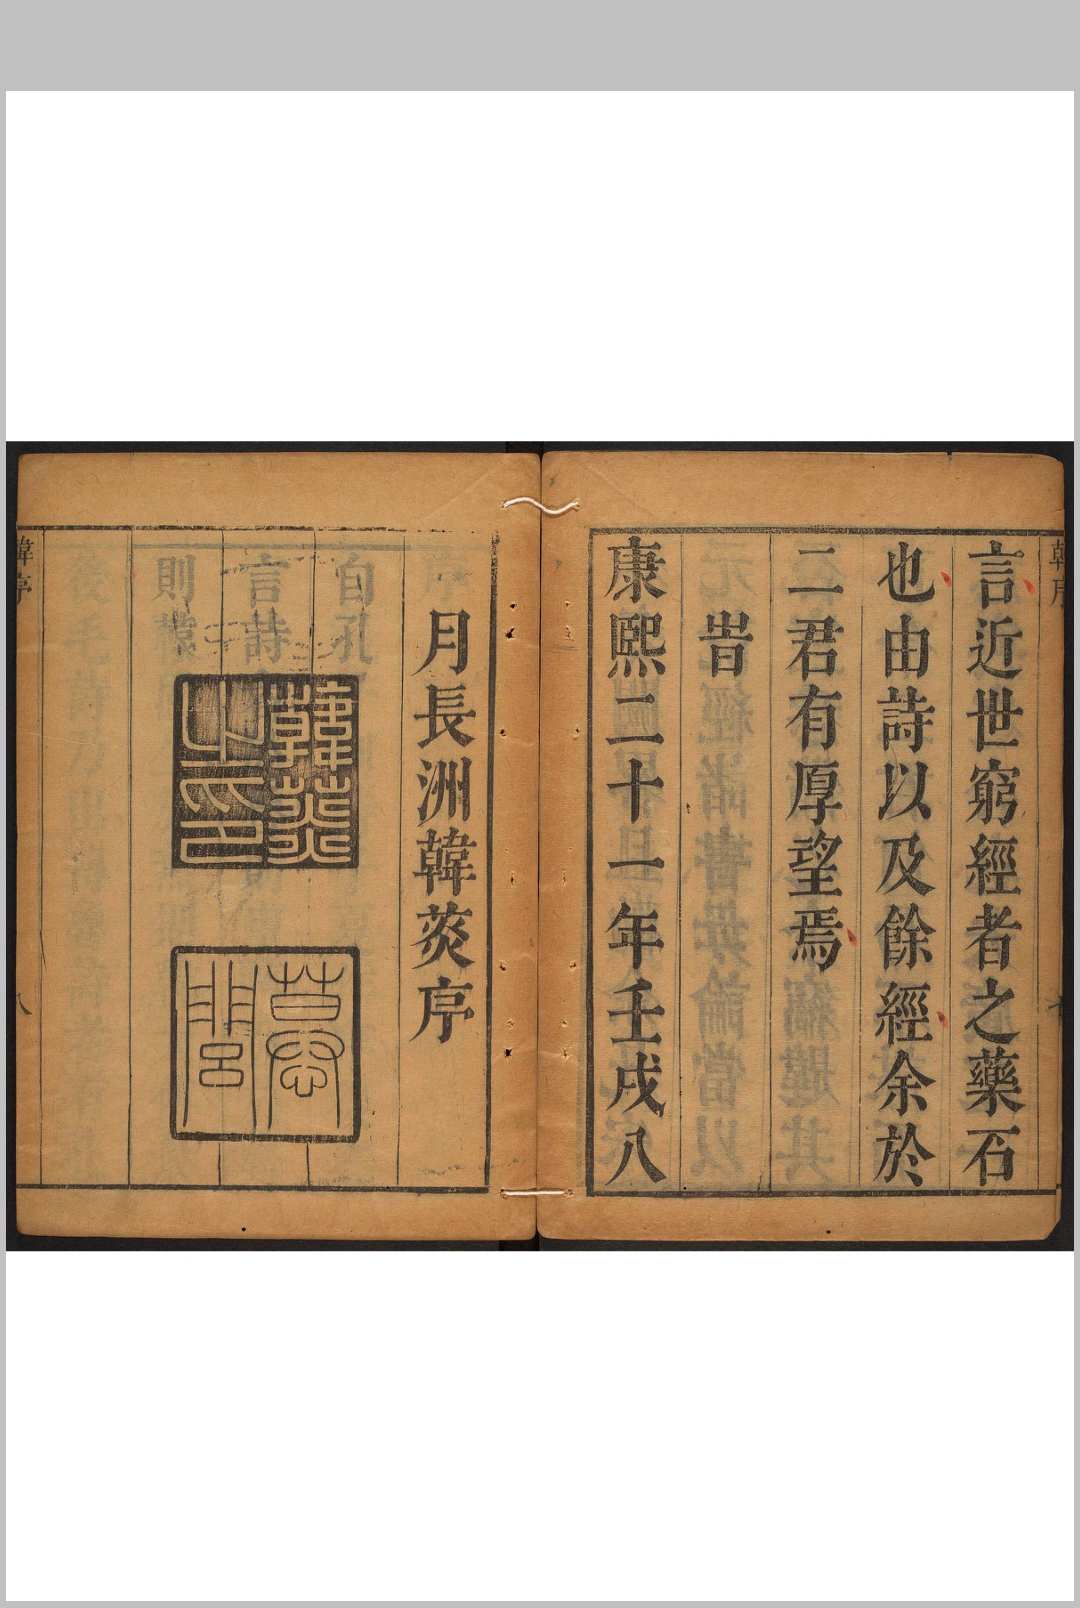 韓序
言近世窮經者之藥石
也由詩以及餘經余於
二君有厚望焉
旹
康熙二十一年壬戌八
月長洲韓菼序
韓菼之印
韓序
八